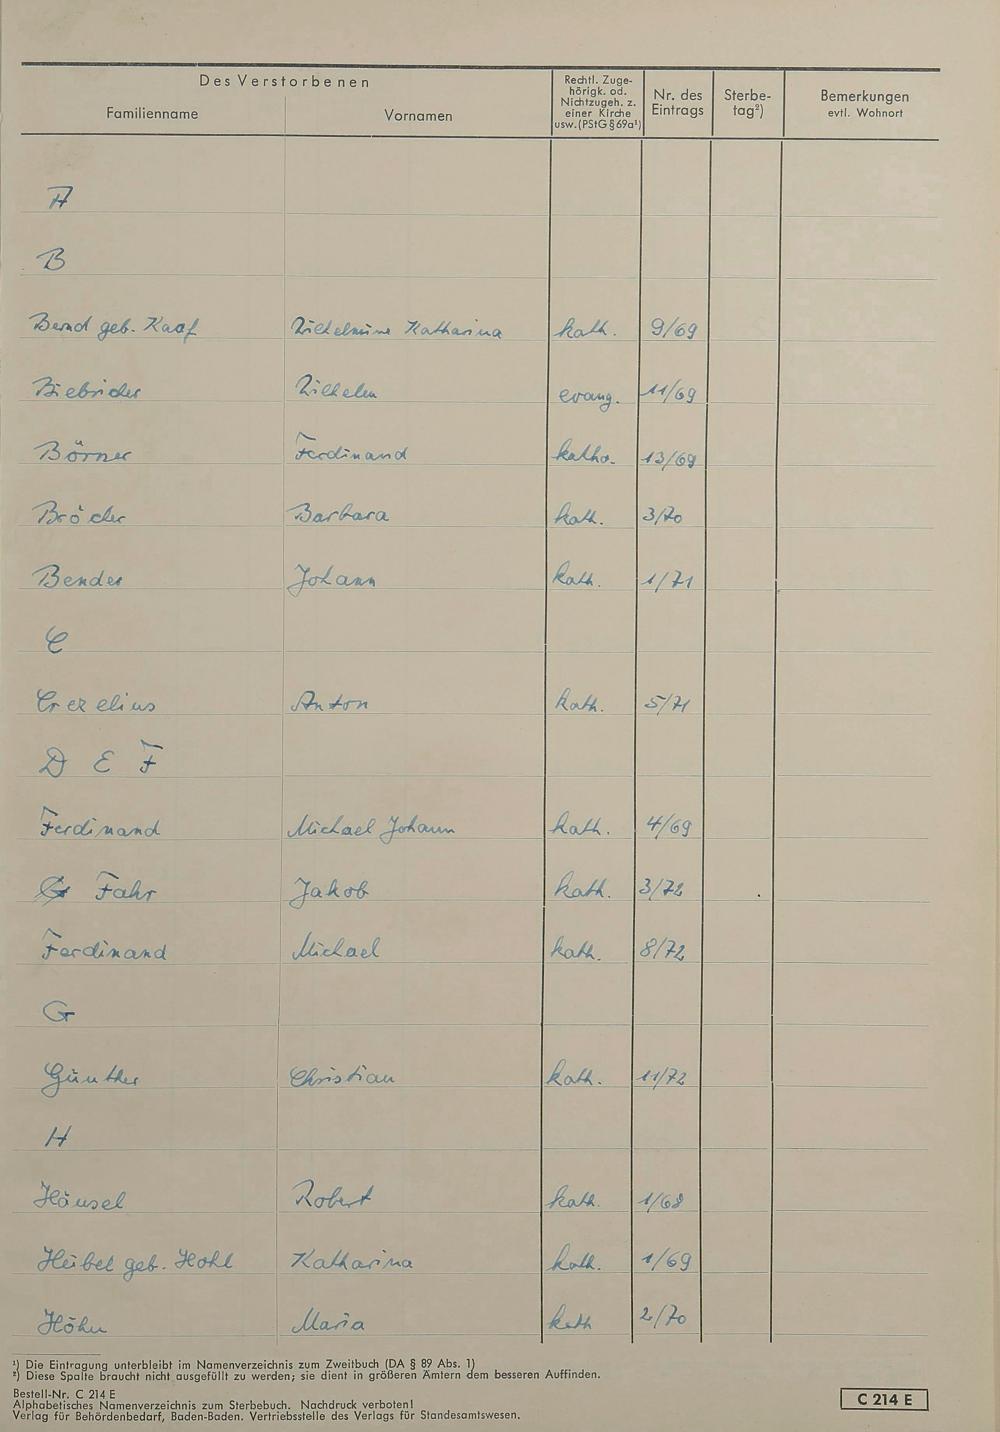 Des Verstorbenen
Familienname
Vornamen
Rechtl. Zuge-
hörigk. od.
Nichtzugeh. z.
einer Kirche
usw.(PStG §69a¹)
Nr. des
Eintrags
Sterbe-
tag²)
Bemerkungen
evtl. Wohnort
A
B
Bernd geb. Kaaf Wilhelmine Katharina kath. 9/69
Biebricher Wilhelm evang. 11/69
Börner Ferdinand katho. 13/69
Bröder Barbara kath. 3/70
Bender Johann kath. 1/71
C
Crezelius Anton kath. 5/71
D E F
Ferdinand Michael Johann kath. 4/69
G Fahr Jakob kath. 3/72
Ferdinand Michael kath. 8/72
G
Günther Christian kath. 11/72
H
Häusel Robert kath. 1/68
Heibel geb. Hohl Katharina kath. 1/69
Höhn Maria kath 2/70
¹) Die Eintragung unterbleibt im Namenverzeichnis zum Zweitbuch (DA § 89 Abs. 1)
²) Diese Spalte braucht nicht ausgefüllt zu werden; sie dient in größeren Ämtern dem besseren Auffinden.
Bestell-Nr. C 214 E
Alphabetisches Namenverzeichnis zum Sterbebuch. Nachdruck verboten!
Verlag für Behördenbedarf, Baden-Baden. Vertriebsstelle des Verlags für Standesamtswesen.
C 214 E